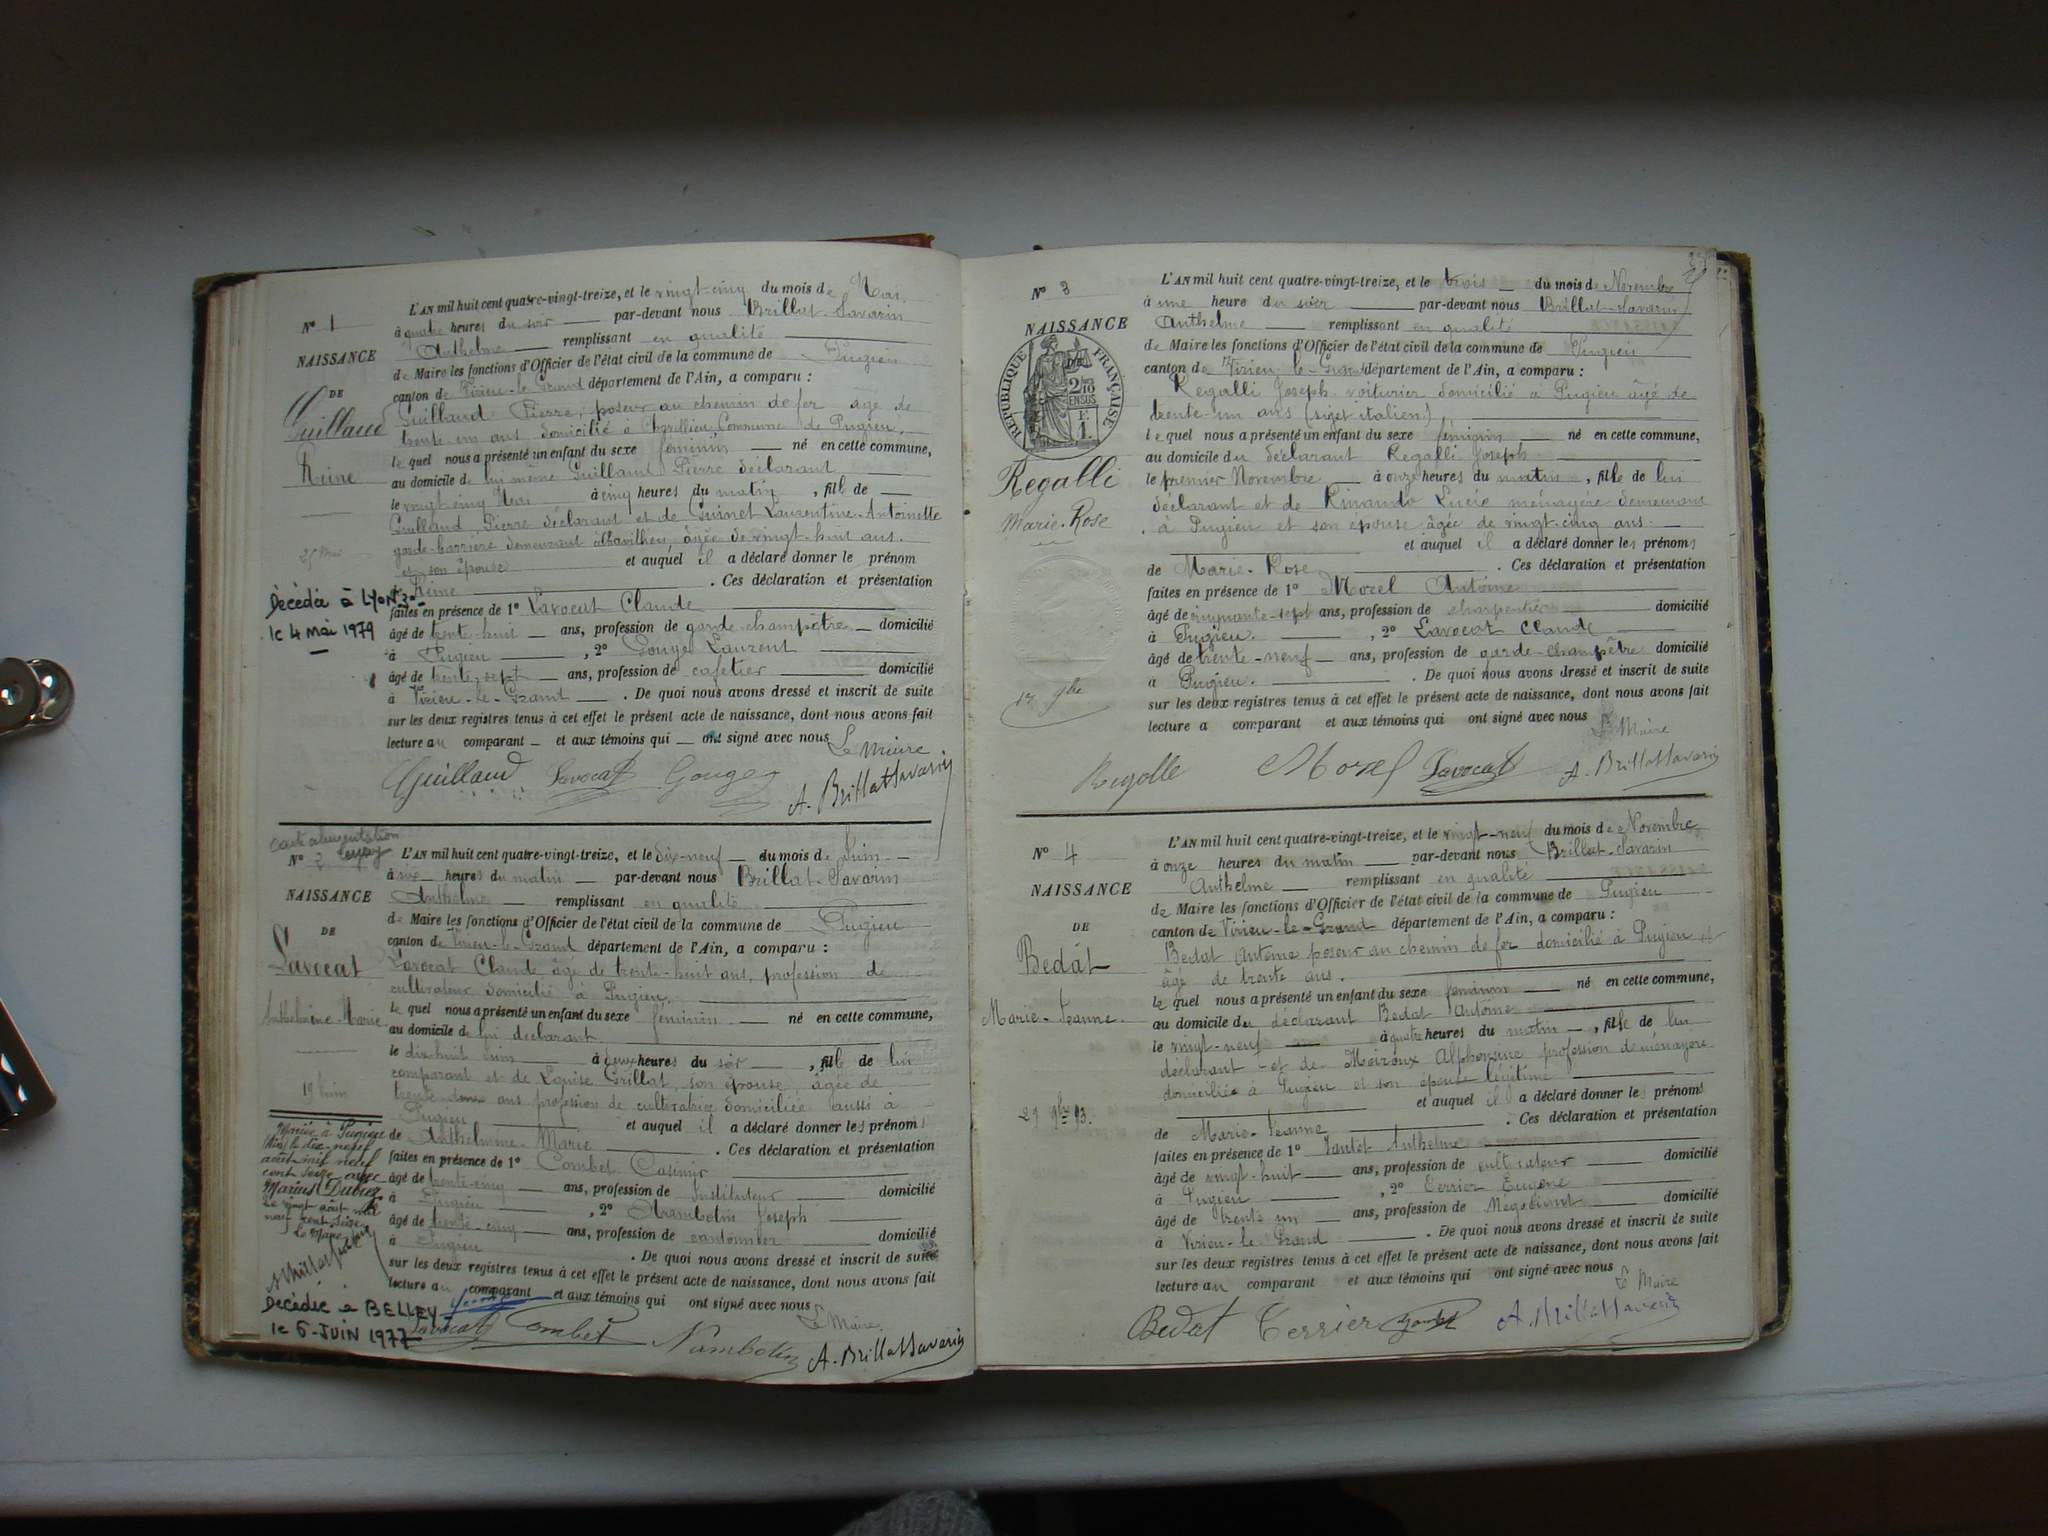 N° 1
NAISSANCE
DE
Guillaud
Reine
25 Mai
Décédée à LYON 3e
le 4 mai 1979
L'AN mil huit cent quatre-vingt-treize, et le vingt-cinq du mois de Mai
à quatre heures du soir par-devant nous Brillat-Savarin
Anthelme remplissant en qualité
de Maire les fonctions d'Officier de l'état civil de la commune de Pugieu
canton de Virieu-le-Grand département de l'Ain, a comparu :
Guillaud Pierre, poseur au chemin de fer âgé de
trente un ans domicilié à Commune de Pugieu.
le quel nous a présenté un enfant du sexe féminin né en cette commune,
au domicile de lui même Guillaud Pierre déclarant
le vingt cinq Mai à cinq heures du matin, fille de
Guillaud Pierre déclarant et de Guinet Laurentine-Antoinette
garde-barrière demeurant âgée de vingt-huit ans.
et son épouse et auquel il a déclaré donner le prénom
de Reine. Ces déclaration et présentation
faites en présence de 1° Lavocat Claude
âgé de trente-huit ans, profession de garde-champêtre domicilié
à Pugieu, 2° Gouge Laurent
âgé de trente-sept ans, profession de cafetier domicilié
à Virieu-le-Grand. De quoi nous avons dressé et inscrit de suite
sur les deux registres tenus à cet effet le présent acte de naissance, dont nous avons fait
lecture au comparant et aux témoins qui ont signé avec nous
Le Maire
Guillaud Lavocat Gouge A. BrillatSavarin
carte alimentation
N° 2
NAISSANCE
DE
Lavocat
Anthelmine-Marie
19 Juin
Mariée à Pugieu
(Ain) le dix-neuf
août mil neuf
cent seize avec
Marius
Le vingt août mil
neuf cent seize
Le Maire
Décédée à BELLEY
le 6-JUIN 1977
L'AN mil huit cent quatre-vingt-treize, et le dix-neuf du mois de Juin
à six heures du matin par-devant nous Brillat-Savarin
Anthelme remplissant en qualité
de Maire les fonctions d'Officier de l'état civil de la commune de Pugieu
canton de Virieu-le-Grand département de l'Ain, a comparu :
Lavocat Claude, âgé de trente-huit ans, profession de
cultivateur domicilié à Pugieu.
le quel nous a présenté un enfant du sexe féminin né en cette commune,
au domicile de lui déclarant
le dix-huit Juin à deux heures du soir, fille de lui
comparant et de Louise Grillat, son épouse, âgée de
trente ans profession de cultivatrice domiciliée aussi à
Pugieu et auquel il a déclaré donner les prénoms
de Anthelmine-Marie. Ces déclaration et présentation
faites en présence de 1° Combet Casimir
âgé de trente-cinq ans, profession de Instituteur domicilié
à Pugieu, 2° Joseph
âgé de trente-cinq ans, profession de cantonnier domicilié
à Pugieu. De quoi nous avons dressé et inscrit de suite
sur les deux registres tenus à cet effet le présent acte de naissance, dont nous avons fait
lecture au comparant et aux témoins qui ont signé avec nous
Le Maire.
Lavocat Combet A. BrillatSavarin
N° 3
NAISSANCE
DE
RÉPUBLIQUE FRANÇAISE
Regalli
Marie-Rose
L'AN mil huit cent quatre-vingt-treize, et le trois du mois de Novembre
à une heure du soir par-devant nous Brillat-Savarin
Anthelme remplissant en qualité
de Maire les fonctions d'Officier de l'état civil de la commune de Pugieu
canton de Virieu-le-Grand département de l'Ain, a comparu :
Regalli Joseph voiturier domicilié à Pugieu âgé de
trente-un ans (sujet italien)
le quel nous a présenté un enfant du sexe féminin né en cette commune,
au domicile du déclarant Regalli Joseph
le premier Novembre à onze heures du matin, fille de lui
déclarant et de Rinando Lucie ménagère demeurant
à Pugieu et son épouse âgée de vingt-cinq ans.
et auquel il a déclaré donner les prénoms
de Marie-Rose. Ces déclaration et présentation
faites en présence de 1° Morel Antoine
âgé de cinquante-sept ans, profession de charpentier domicilié
à Pugieu., 2° Lavocat Claude
âgé de trente-neuf ans, profession de garde-champêtre domicilié
à Pugieu. De quoi nous avons dressé et inscrit de suite
sur les deux registres tenus à cet effet le présent acte de naissance, dont nous avons fait
lecture a comparant et aux témoins qui ont signé avec nous
Le Maire
Morel Lavocat A. BrillatSavarin
N° 4
NAISSANCE
DE
Bedat
Marie-Jeanne
29 9bre 93.
L'AN mil huit cent quatre-vingt-treize, et le vingt-neuf du mois de Novembre
à onze heures du matin par-devant nous Brillat-Savarin
Anthelme remplissant en qualité
de Maire les fonctions d'Officier de l'état civil de la commune de Pugieu
canton de Virieu-le-Grand département de l'Ain, a comparu :
Bedat Antoine poseur au chemin de fer domicilié à Pugieu et
âgé de trente ans.
le quel nous a présenté un enfant du sexe féminin né en cette commune,
au domicile du déclarant Bedat Antoine
le vingt-neuf à quatre heures du matin, fille de lui
déclarant et de Moiroux Alphonsine profession de ménagère
domiciliée à Pugieu et son épouse légitime
et auquel il a déclaré donner les prénoms
de Marie-Jeanne. Ces déclaration et présentation
faites en présence de 1° Anthelme
âgé de vingt-huit ans, profession de cultivateur domicilié
à Pugieu, 2° Cerrier Eugène
âgé de trente un ans, profession de Négociant domicilié
à Virieu-le-Grand. De quoi nous avons dressé et inscrit de suite
sur les deux registres tenus à cet effet le présent acte de naissance, dont nous avons fait
lecture au comparant et aux témoins qui ont signé avec nous
Le Maire
Bedat Cerrier A. BrillatSavarin